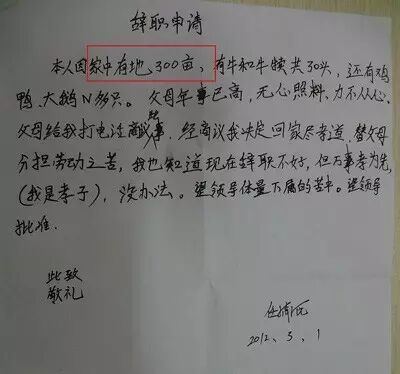 辞职申请
本人因家中有地300亩、有牛和牛犊共30头,还有鸡
鸭、大鹅N多只。父母年事已高,无心照料、力不从心。
父母给我打电话商议事,经商议我决定回家尽孝道 替父母
分担劳动之苦,我也知道现在辞职不好,但百事孝为先,
(我是孝子),没办法。望领导体量下属的苦中。望领导
批准.
此致
敬礼
2012、3、1